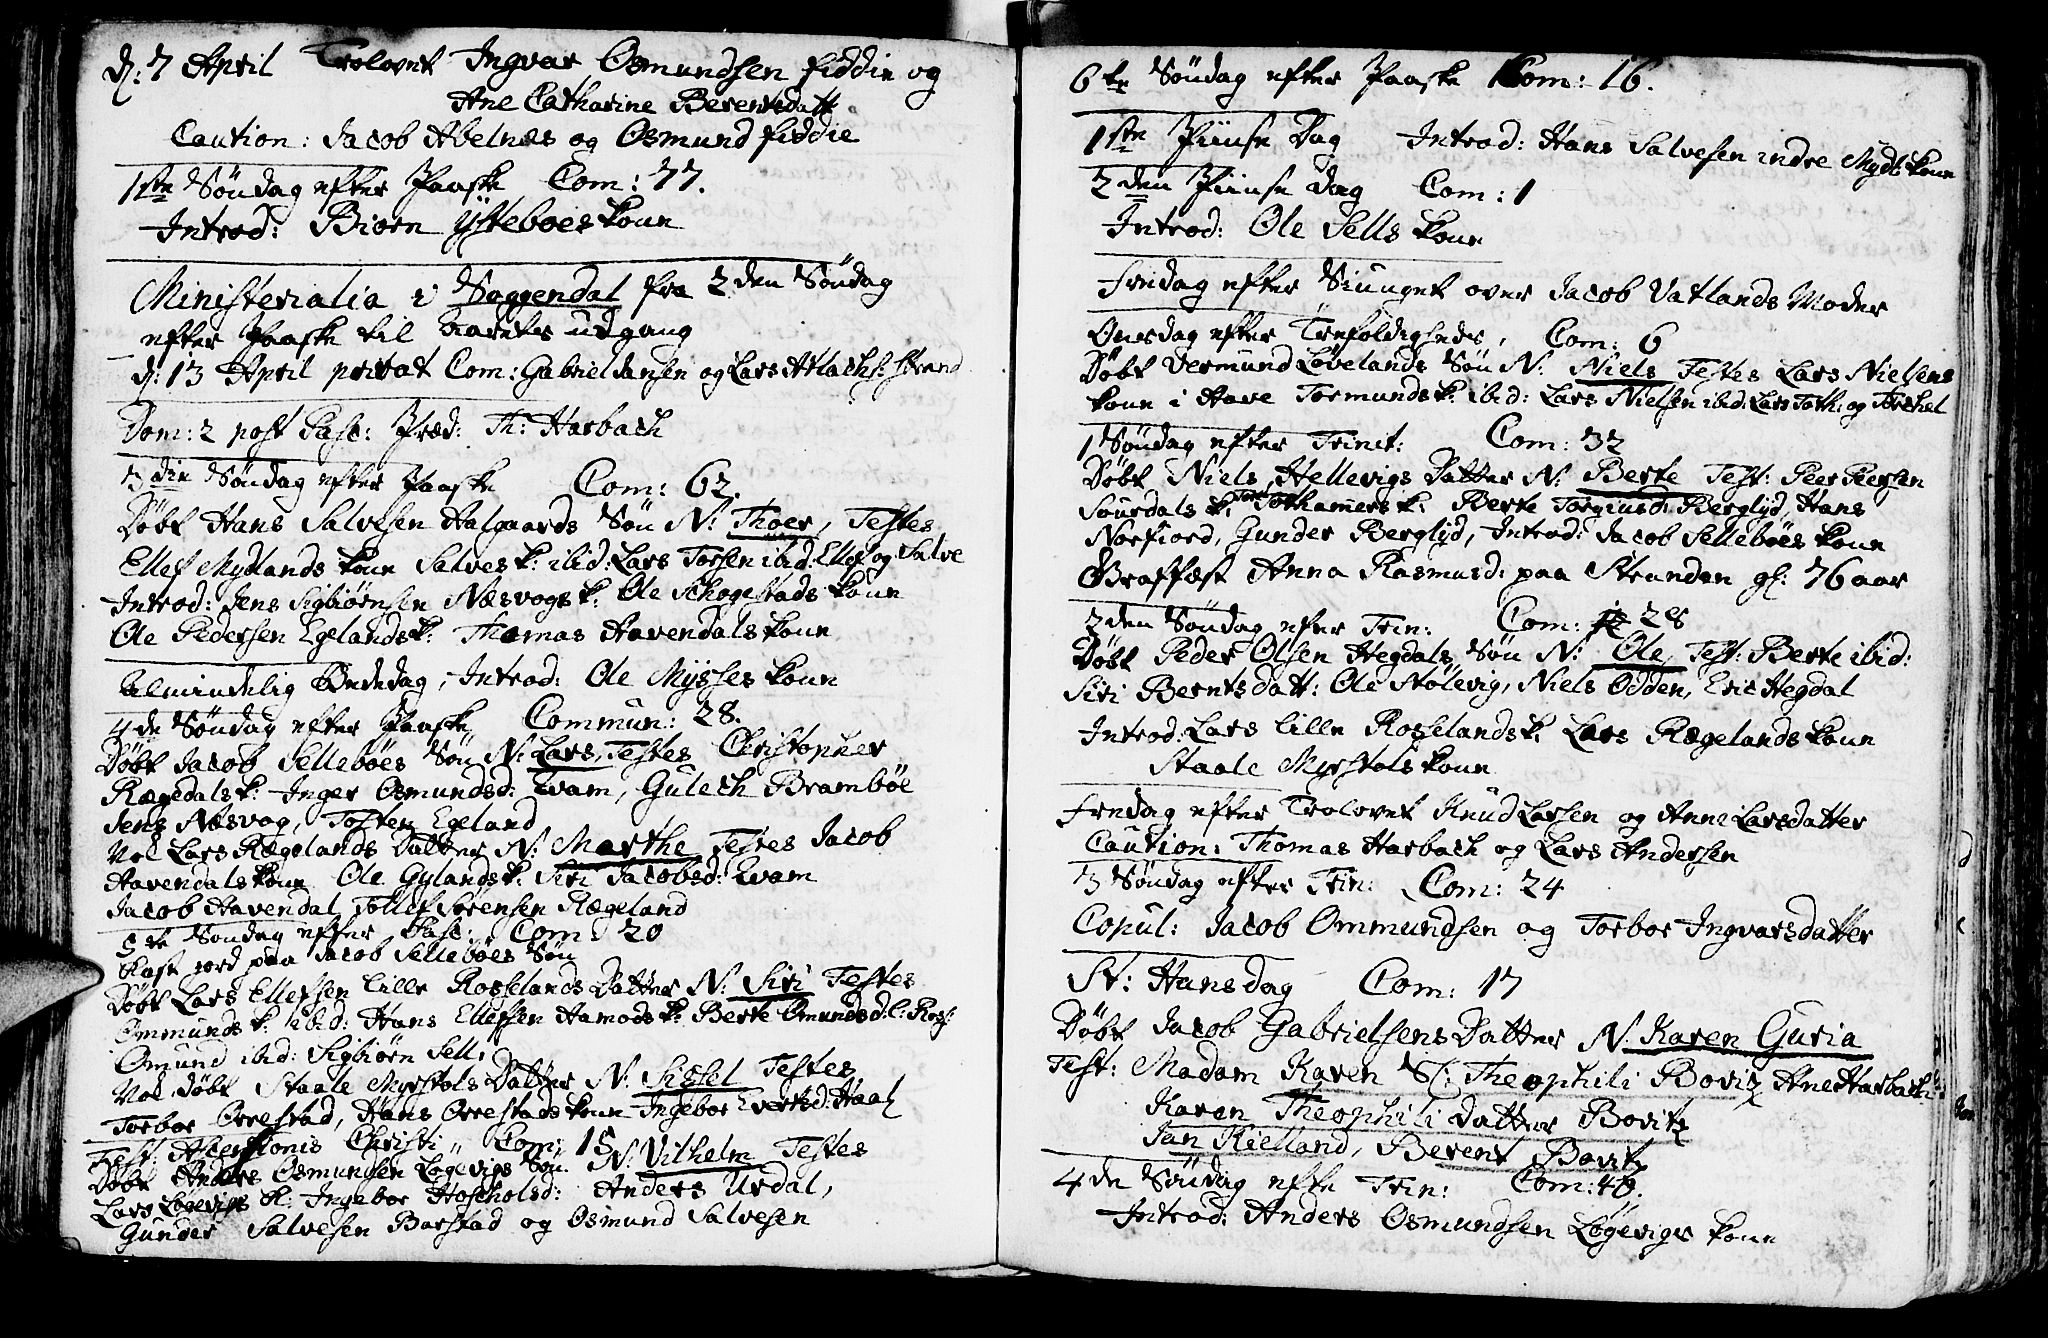 d: 7 April Trolovet Ingvar Osmundsen fiddie og
Ane Catharine Berentsdatt
Caution: Jacob Abelnæs og Osmund fiddie
1ste Søndag efter Paaske Com: 77.
Introd: Biørn Ysteboes kone
Ministerialia i Soggendal fra 2den Søndag
efter Paaske til Aarets udgang
d: 13 April privat Com: Gabriel Jansen og Lars Atlachs: Strand
Dom: 2 post Pasc: Præd: Th: Harbach
3die Søndag efter Paaske Com: 62.
Døbt Hans Salvesen Aalgaards Søn N: Thoer, Testes
Ellef Mydlands kone Salves k: ibid: Lars Torsen ibid: Ellef og Salve
Introd: Jens Sigbiørnsen Næsvogs k: Ole Schogestads kone
Ole Pedersen Egelands k: Thomas Havendals kone
Almindelig Bededag, Introd: Ole Mysses kone
4de Søndag efter Paaske Commun: 28.
Døbt Jacob Sellebøes Søn N: Lars, Testes Christopher
Rægedals k: Inger Osmundsd: Evam, Gulech Brambøe
Jens Næsvog, Tosten Egeland
Nok Lars Rægelands Datter N: Marthe Testes Jacob
Havendals kone Ole Gylands k: Siri Jacobsd: Evam
Jacob Havendal Tollef Sørensen Rægeland
5te Søndag efter Pasc: Com: 20
Kast jord paa Jacob Sellebøes Søn
Døbt Lars Ellefsen lille Rosselands Datter N: Siri Testes
Ommunds k: ibid: Hans Ellefsen Hamods k: Berte Omundsd: l: Ross:
Omund ibid: Sigbiørn Sell:
Nok døbt Staale Myrstols Datter N: Sissel Testes
Torbor Orrestad, Hans Orrestads kone Ingebor Evertsd: Haal
Fest: Ascensionis Christi, Com: 15
Døbt Anders Osmunsen Løgevigs Søn N: Vilhelm Testes
Lars Løgevigs k: Ingebor Hoskolsd: Anders Urdal,
Gunder Salvesen Barstad og Osmund Salvesen
6te Søndag efter Paaske Com: 16.
1ste Pintse Dag Introd: Hans Salvesen indre Mydl: kone
2den Pintse Dag Com: 1
Introd: Ole Sells kone
Fredag efter Siunget over Jacob Vatlands Moder
Onsdag efter Trefoldigheds, Com: 6
Døbt Vermund Løvelands Søn N: Niels Testes Lars Nielsens
kone i Have Tormunds k: ibid: Lars Nielsen ibid: Lars Toth: og Torchel
1 Søndag efter Trinit: Com: 32
Døbt Niels Hellevigs Datter N: Berte Test: Peer Peersen
Sourdals k: Tothamers k: Berte Torgiusd: Berglyd, Hans
Norfiord, Gunder Berglyd, Introd: Jacob Sellebøes kone
Graffæst Anna Rasmusd: paa Stranden gl: 76 aar
2den Søndag efter Trin: Com: 28
Døbt Peder Olsen Hegdals Søn N: Ole, Test: Berte ibid:
Siri Berntsdatt: Ole Stølevig, Niels Odden, Eric Hegdal
Introd: Lars lille Roselands k: Lars Rægelands kone
Staale Myrstols kone
Fredag efter Trolovet Knud Larsen og Anne Larsdatter
Caution: Thomas Harbach og Lars Andersen
3 Søndag efter Trin: Com: 24
Copul: Jacob Ommundsen og Torbor Ingvarsdatter
St: Hansdag Com: 17
Døbt Jacob Gabrielsens Datter N. Karen Guria
Test: Madam Karen Sl: Theophili Bovitz Ane Harbach
Karen Theophili datter Bovitz
Jan Kielland, Berent Bovitz
4de Søndag efte Trin: Com: 40.
Introd: Anders Osmundsen Løgevigs kone